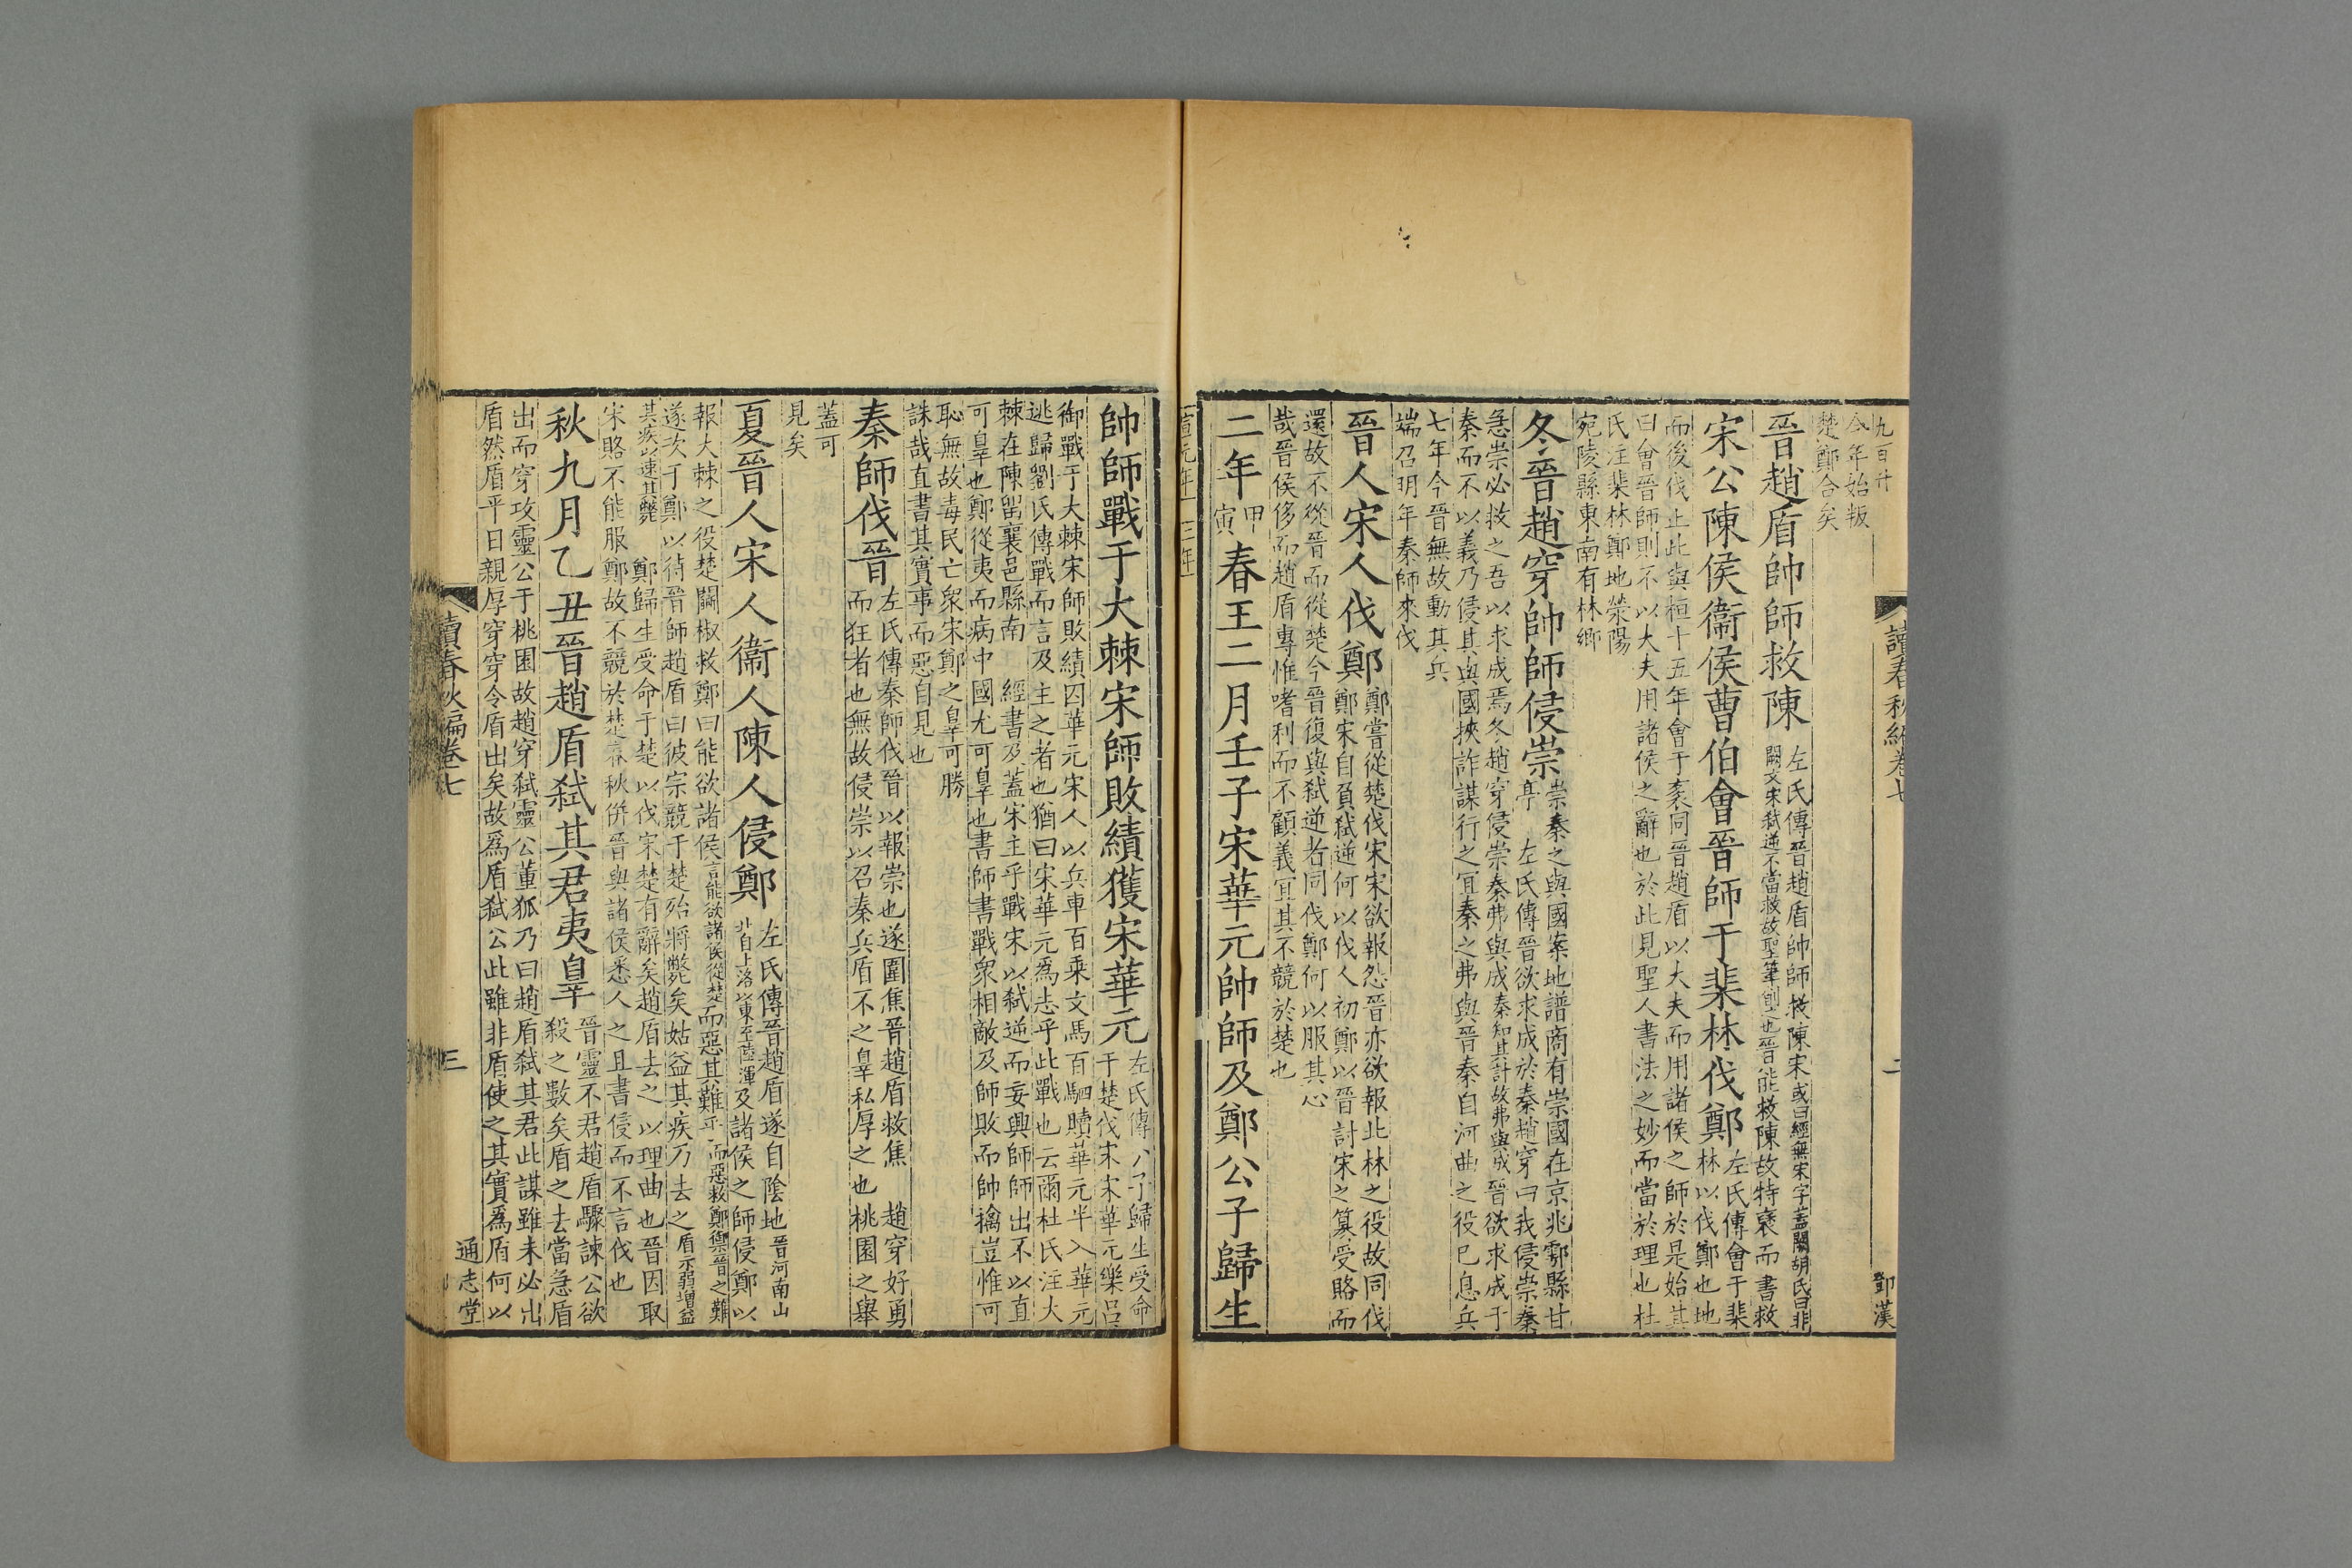 讀春秋編卷七
二
鄧漢
今年始叛
楚鄭合矣
晉趙盾帥師救陳
左氏傳晉趙盾帥師救陳宋或曰經無宋字蓋闕胡氏曰非
闕文宋弑逆不當救故聖筆削之也晉能救陳故特襃而書救
宋公陳侯衞侯曹伯會晉師于棐林伐鄭
左氏傳會于棐
林以伐鄭也地
而後伐止此與桓十五年會于袤同晉趙盾以大夫而用諸侯之師於是始其
曰會晉師則不以大夫用諸侯之辭也於此見聖人書法之妙而當於理也杜
氏注棐林鄭地滎陽
宛陵縣東南有林鄉
冬晉趙穿帥師侵崇
崇秦之與國案地譜商有崇國在京兆鄠縣甘
亭 左氏傳晉欲求成於秦趙穿曰我侵崇秦
急崇必救之吾以求成焉冬趙穿侵崇秦弗與成秦知其計故弗與成晉欲求成于
秦而不以義乃侵其與國挾詐謀行之宜秦之弗與晉秦自河曲之役已息兵
七年今晉無故動其兵
端召明年秦師來伐
晉人宋人伐鄭
鄭嘗從楚伐宋宋欲報怨晉亦欲報北林之役故同伐
鄭宋自負弑逆何以伐人初鄭以晉討宋之簒受賂而
還故不從晉而從楚今晉復與弑逆者同伐鄭何以服其心
哉晉侯侈而趙盾專惟嗜利而不顧義宜其不競於楚也
二年甲寅春王二月壬子宋華元帥師及鄭公子歸生
宣元年 二年
帥師戰于大棘宋師敗績獲宋華元
左氏傳公子歸生受命
于楚伐宋宋華元樂呂
御戰于大棘宋師敗績囚華元宋人以兵車百乘文馬百駟贖華元半入華元
逃歸劉氏傳戰而言及主之者也猶曰宋華元爲志乎此戰也云爾杜氏注大
棘在陳留襄邑縣南 經書及蓋宋主乎戰宋以弑逆而妄興師師出不以直
可辠也鄭從夷而病中國尤可辠也書師書戰衆相敵及師敗而帥禽豈惟可
恥無故毒民亡衆宋鄭之辠可勝
誅哉直書其實事而惡自見也
秦師伐晉
左氏傳秦師伐晉以報崇也遂圍焦晉趙盾救焦 趙穿好勇
而狂者也無故侵崇以召秦兵盾不之辠私厚之也桃園之舉
蓋可
見矣
夏晉人宋人衞人陳人侵鄭
左氏傳晉趙盾遂自陰地晉河南山
北自上洛以東至陸渾及諸侯之師侵鄭以
報大棘之役楚鬬椒救鄭曰能欲諸侯言能欲諸侯從楚而惡其難乎而惡救鄭禦晉之難
遂次于鄭以待晉師趙盾曰彼宗競于楚殆將斃矣姑益其疾乃去之盾示弱增益
其疾以速其斃 鄭歸生受命于楚以伐宋楚有辭矣趙盾去之以理曲也晉因取
宋賂不能服鄭故不競於楚春秋併晉與諸侯悉人之且書侵而不言伐也
秋九月乙丑晉趙盾弑其君夷皐
晉靈不君趙盾驟諫公欲
殺之數矣盾之去當急盾
出而穿攻靈公于桃園故趙穿弑靈公董狐乃曰趙盾弑其君此謀雖未必出
盾然盾平日親厚穿穿令盾出矣故爲盾弑公此雖非盾使之其實爲盾何以
讀春秋編卷七
三
通志堂